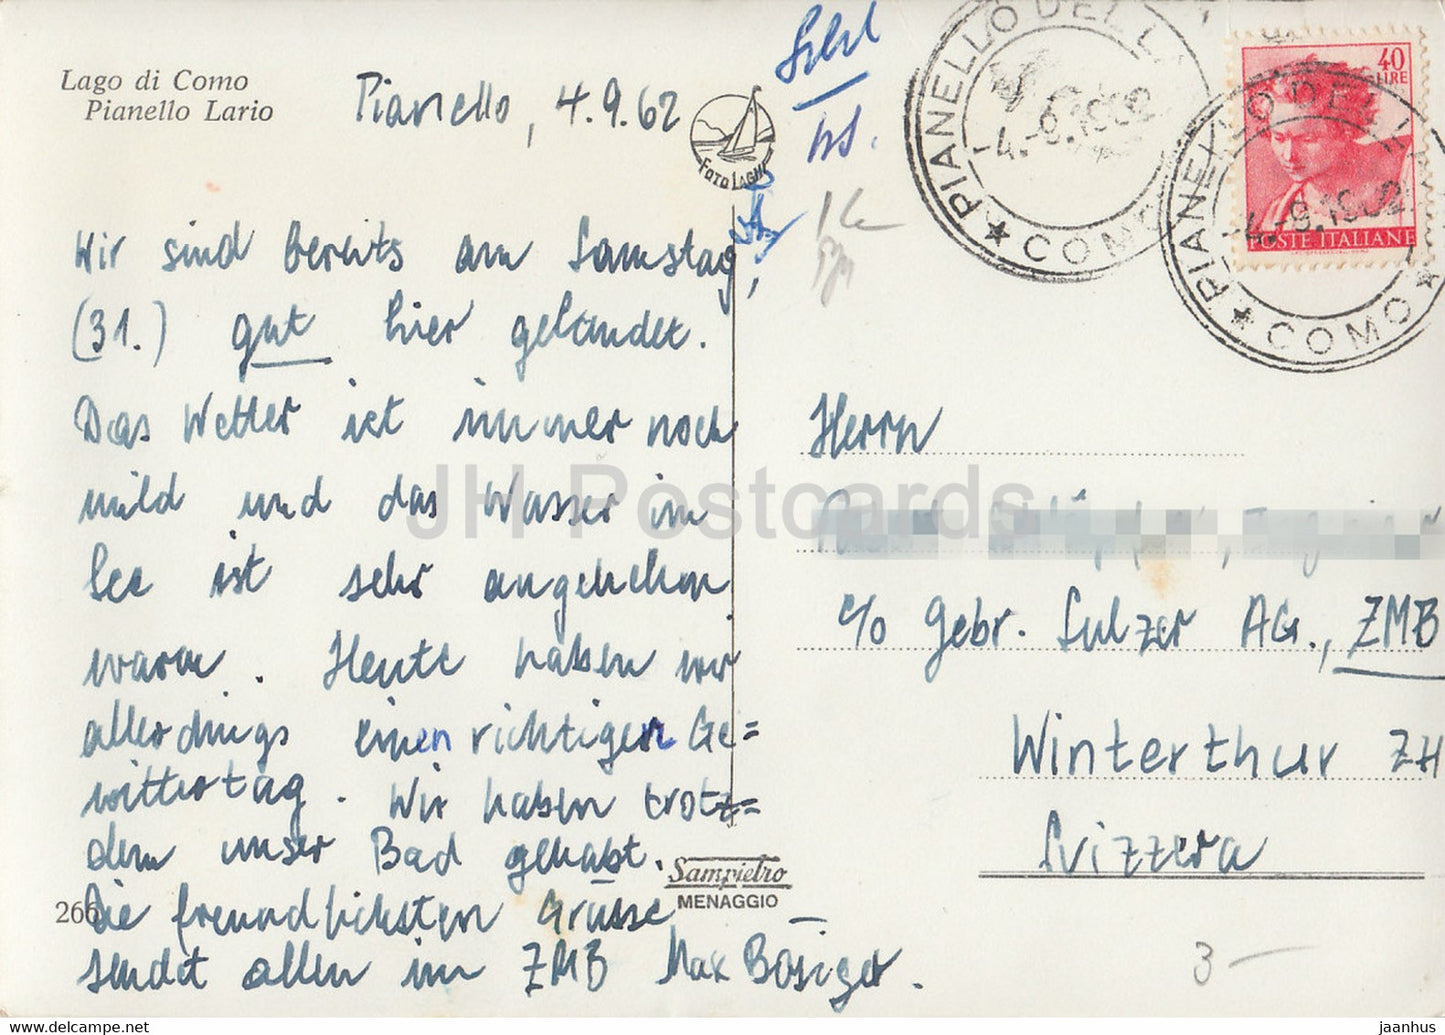 Lago di Como
Pianello Lario
Pianello, 4.9.62
FOTO LAGHI
Wir sind bereits am Samstag,
(31.) gut hier gelandet.
Das Wetter ist immer noch
mild und das Wasser im
See ist sehr angenehm
warm. Heute haben wir
allerdings einen richtigen Ge=
wittertag. Wir haben trotz=
dem unser Bad gehabt.
Die freundlichsten Grüsse
sendet allen im ZMB Max Bösiger.
266
Sampietro
MENAGGIO
PIANELLO DEL L
-4.-9.1962
COMO
PIANELLO DEL L
-4.-9.1962
COMO
40
LIRE
POSTE ITALIANE
Herrn
c/o Gebr. Sulzer AG., ZMB
Winterthur ZH
Svizzera
3 –
JH Postcards
delcampe.net
jaanhus